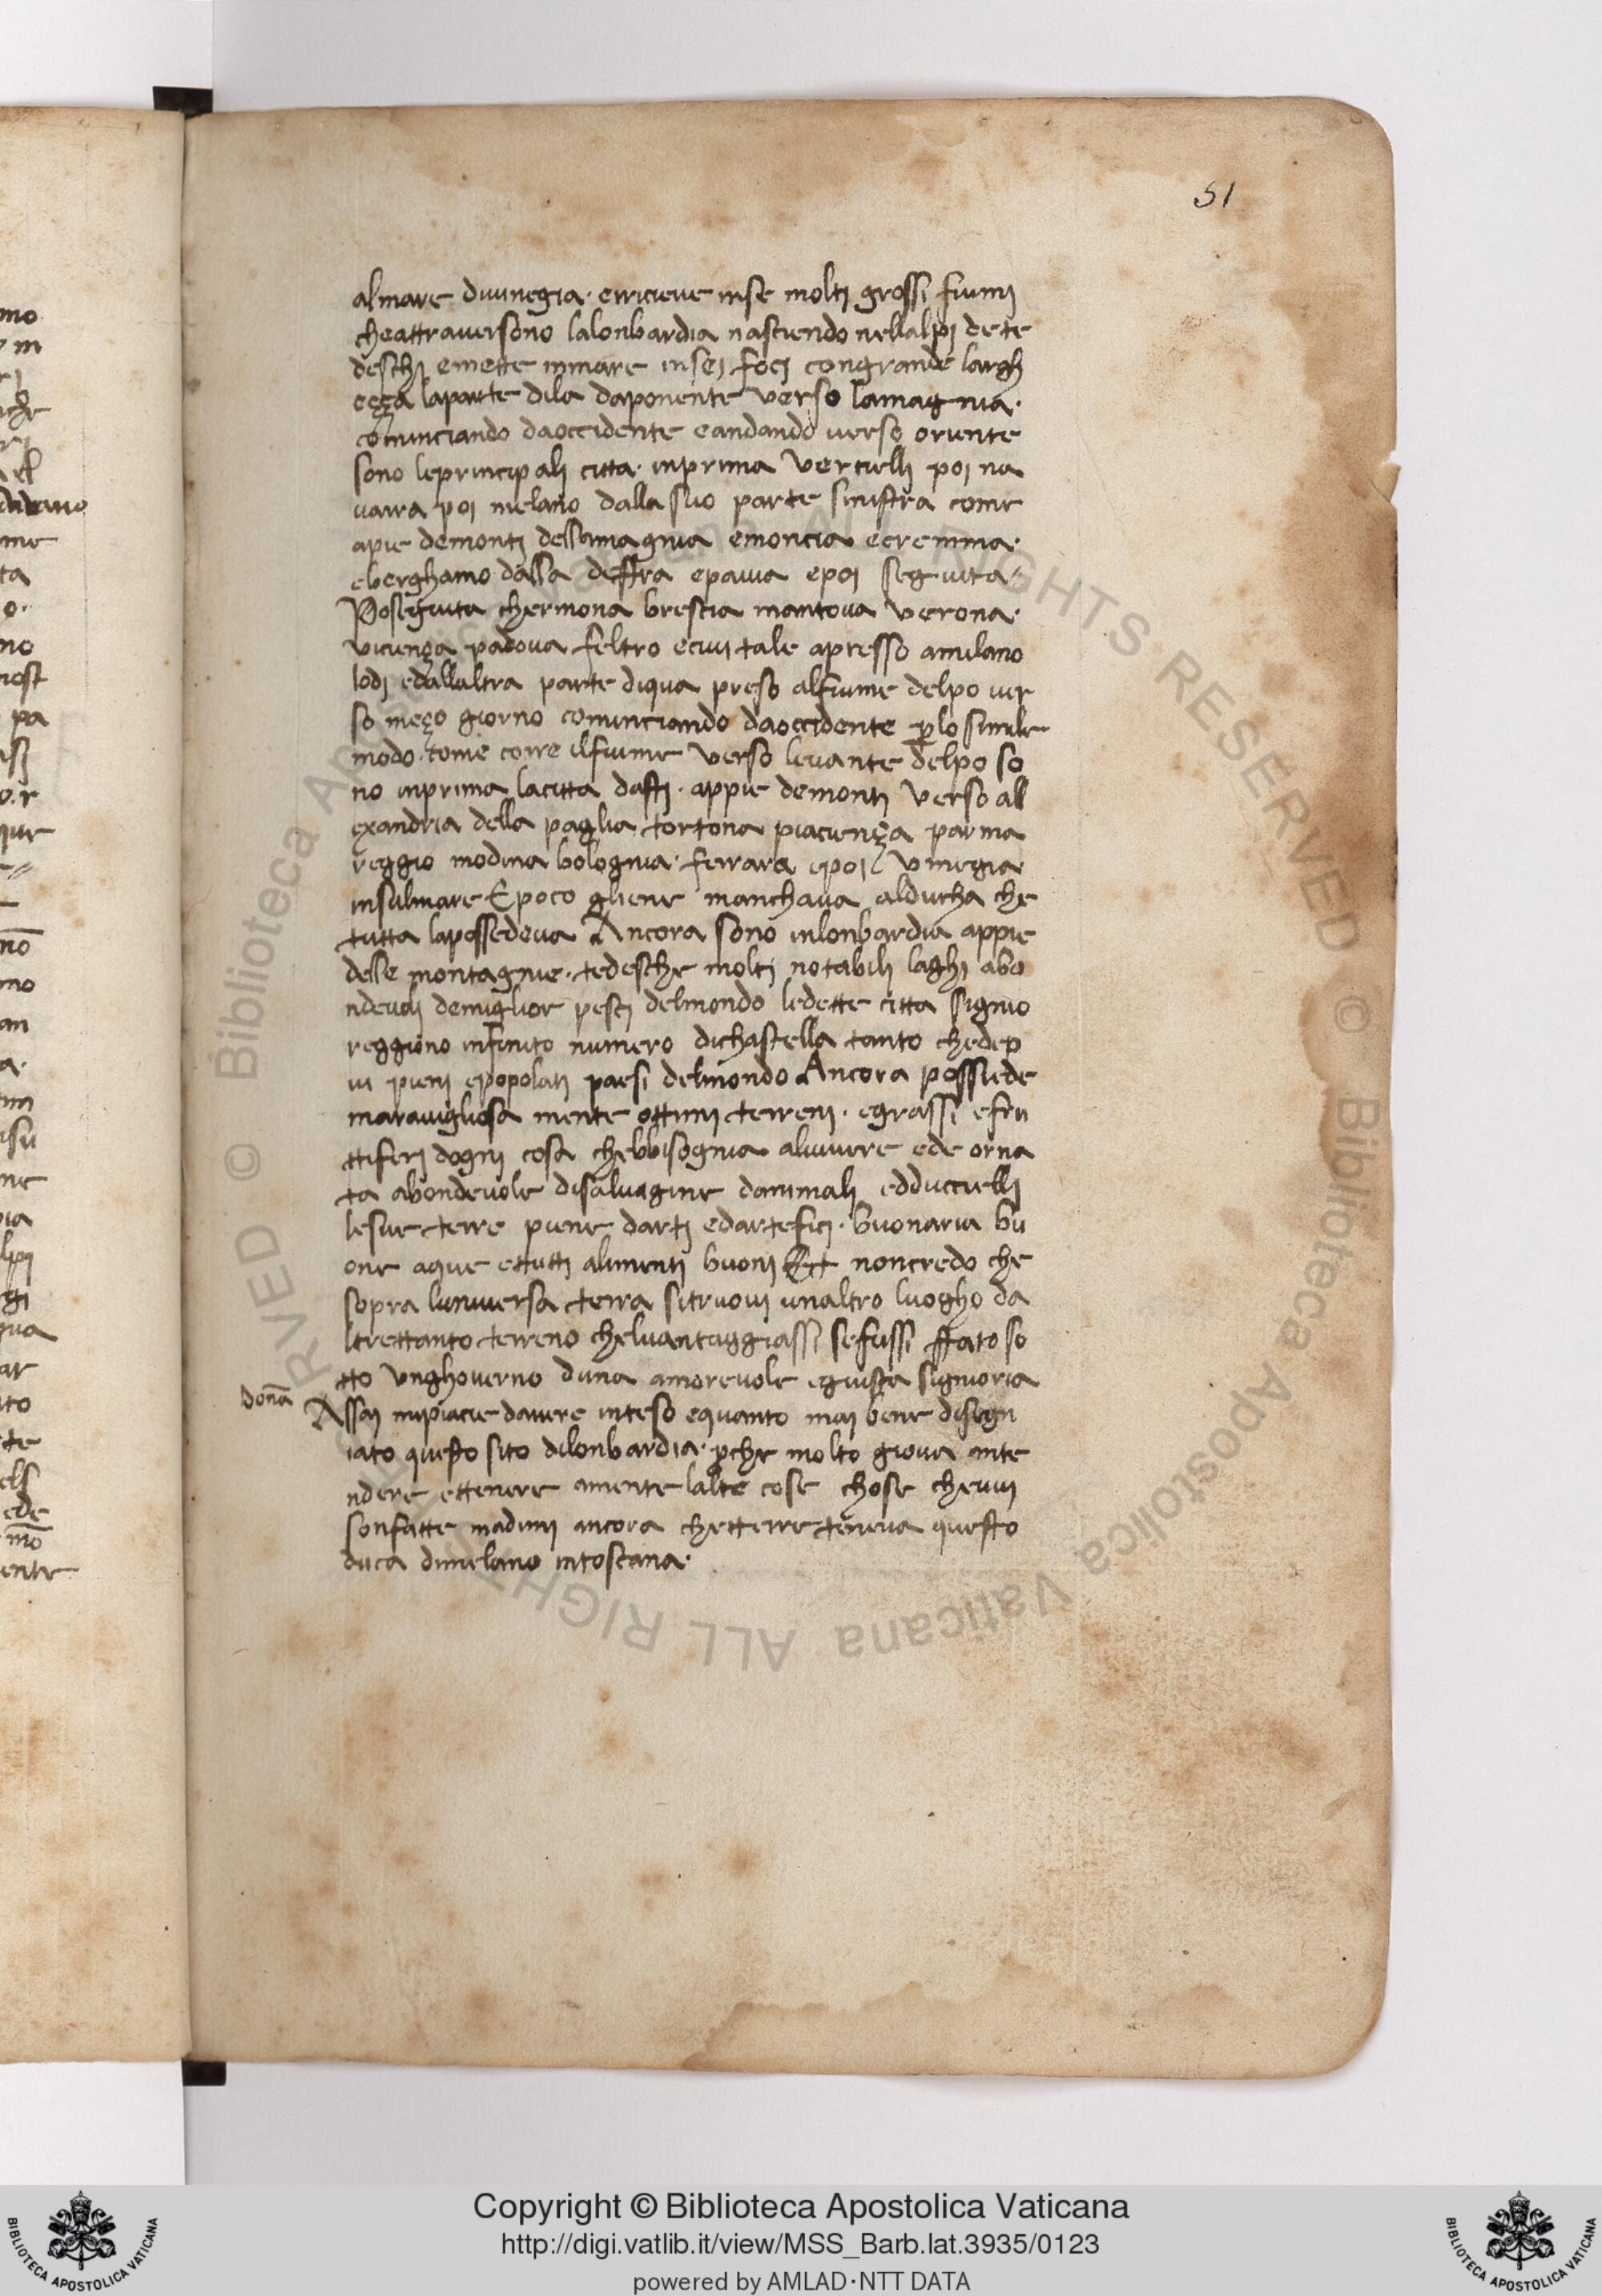 51
almare divinegia · erricieve inse molti grossi fiumi
cheattraversono lalonbardia nasciendo nellalpi dete
deschi emette inmare insej foci congrande largh
eçça laparte dila daponente verso lamagnia ·
cominciando daoccidente eandando verso oriente
sono leprincipali citta · inprima vercielli poi na
varra poi melano dalla suo parte sinistra come
apie demonti dellamagnia emoncia ecremma ·
eberghamo dalla deffra epavia epoi seguita
Poseguita chermona brescia mantova verona ·
viciença padova feltro ecivitale apresso amilano
lodi edallaltra parte diqua preso alfiume delpo ver
so meço giorno cominciando daoccidente perlo simile
modo · come corre ilfiume verso levante delpo so
no inprima lacitta dasti · appie demonti verso all
exandria della paglia tortona piaciença parma
reggio modina bolognia · ferrara epoi vinegia
insulmare Epoco gliene manchava alducha che
tutta lapossedeva Ancora sono inlonbardia appie
delle montagnie · tedesche molti notabili laghi abo
ndevoli demiglior pesci delmondo ledette citta signio
reggiono infinito numero dichastella tanto chedep
iu pieni epopolati paesi delmondo Ancora possiede
maravigliosa mente ottimi terreni · egrassi efru
ttiferi dogni cosa chebbisognia alvivere ede orna
ta abondevole disalvagine danimali edduccielli
lesue terre piene darti edartefici · buonaria bu
one aque ettutti alimenti buoni Et noncredo che
sopra luniversa terra sitruovi unaltro luogho da
ltrettanto terreno chelvantaggiassi sefussi ffato so
tto unghoverno duna amorevole egiusta signioria
Donna
Assai mipiacie davere inteso equanto mai bene disegn
iato questo sito dilonbardia · perche molto giova ante
ndere ettenere amente lalte cose chose chevvi
sonfatte madimi ancora chetterre teneva questo
duca dimelano intoscana ·
Copyright © Biblioteca Apostolica Vaticana
http://digi.vatlib.it/view/MSS_Barb.lat.3935/0123
powered by AMLAD·NTT DATA